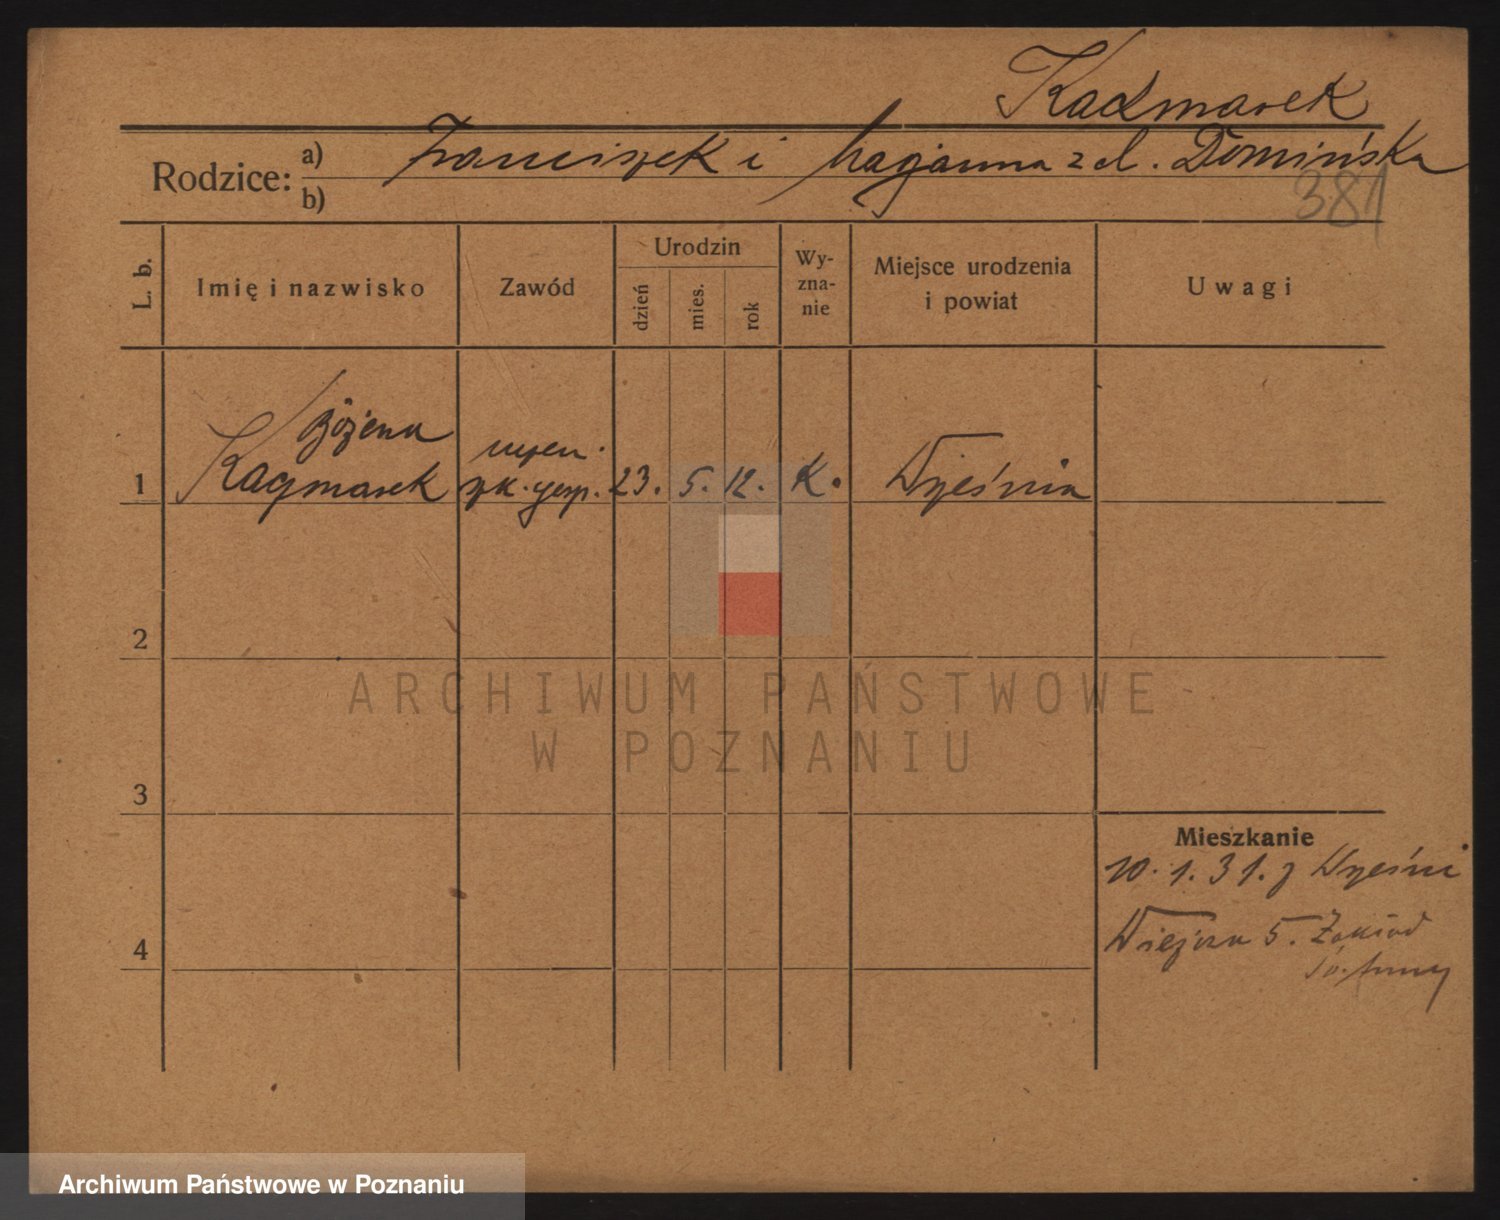 Kaczmarek
Rodzice: a) Franciszek i Marjanna z d. Domińska
b)
381
L. b. Imię i nazwisko Zawód Urodzin dzień mies. rok Wy-zna-nie Miejsce urodzenia i powiat Uwagi
Bożena
1 Kaczmarek uczen. szk. gosp. 23. 5. 12. K. Września
2
3
4
Mieszkanie
10. 1. 31. z Wrześni
Wiejska 5. Zakład
Św. Anny
ARCHIWUM PAŃSTWOWE
W POZNANIU
Archiwum Państwowe w Poznaniu